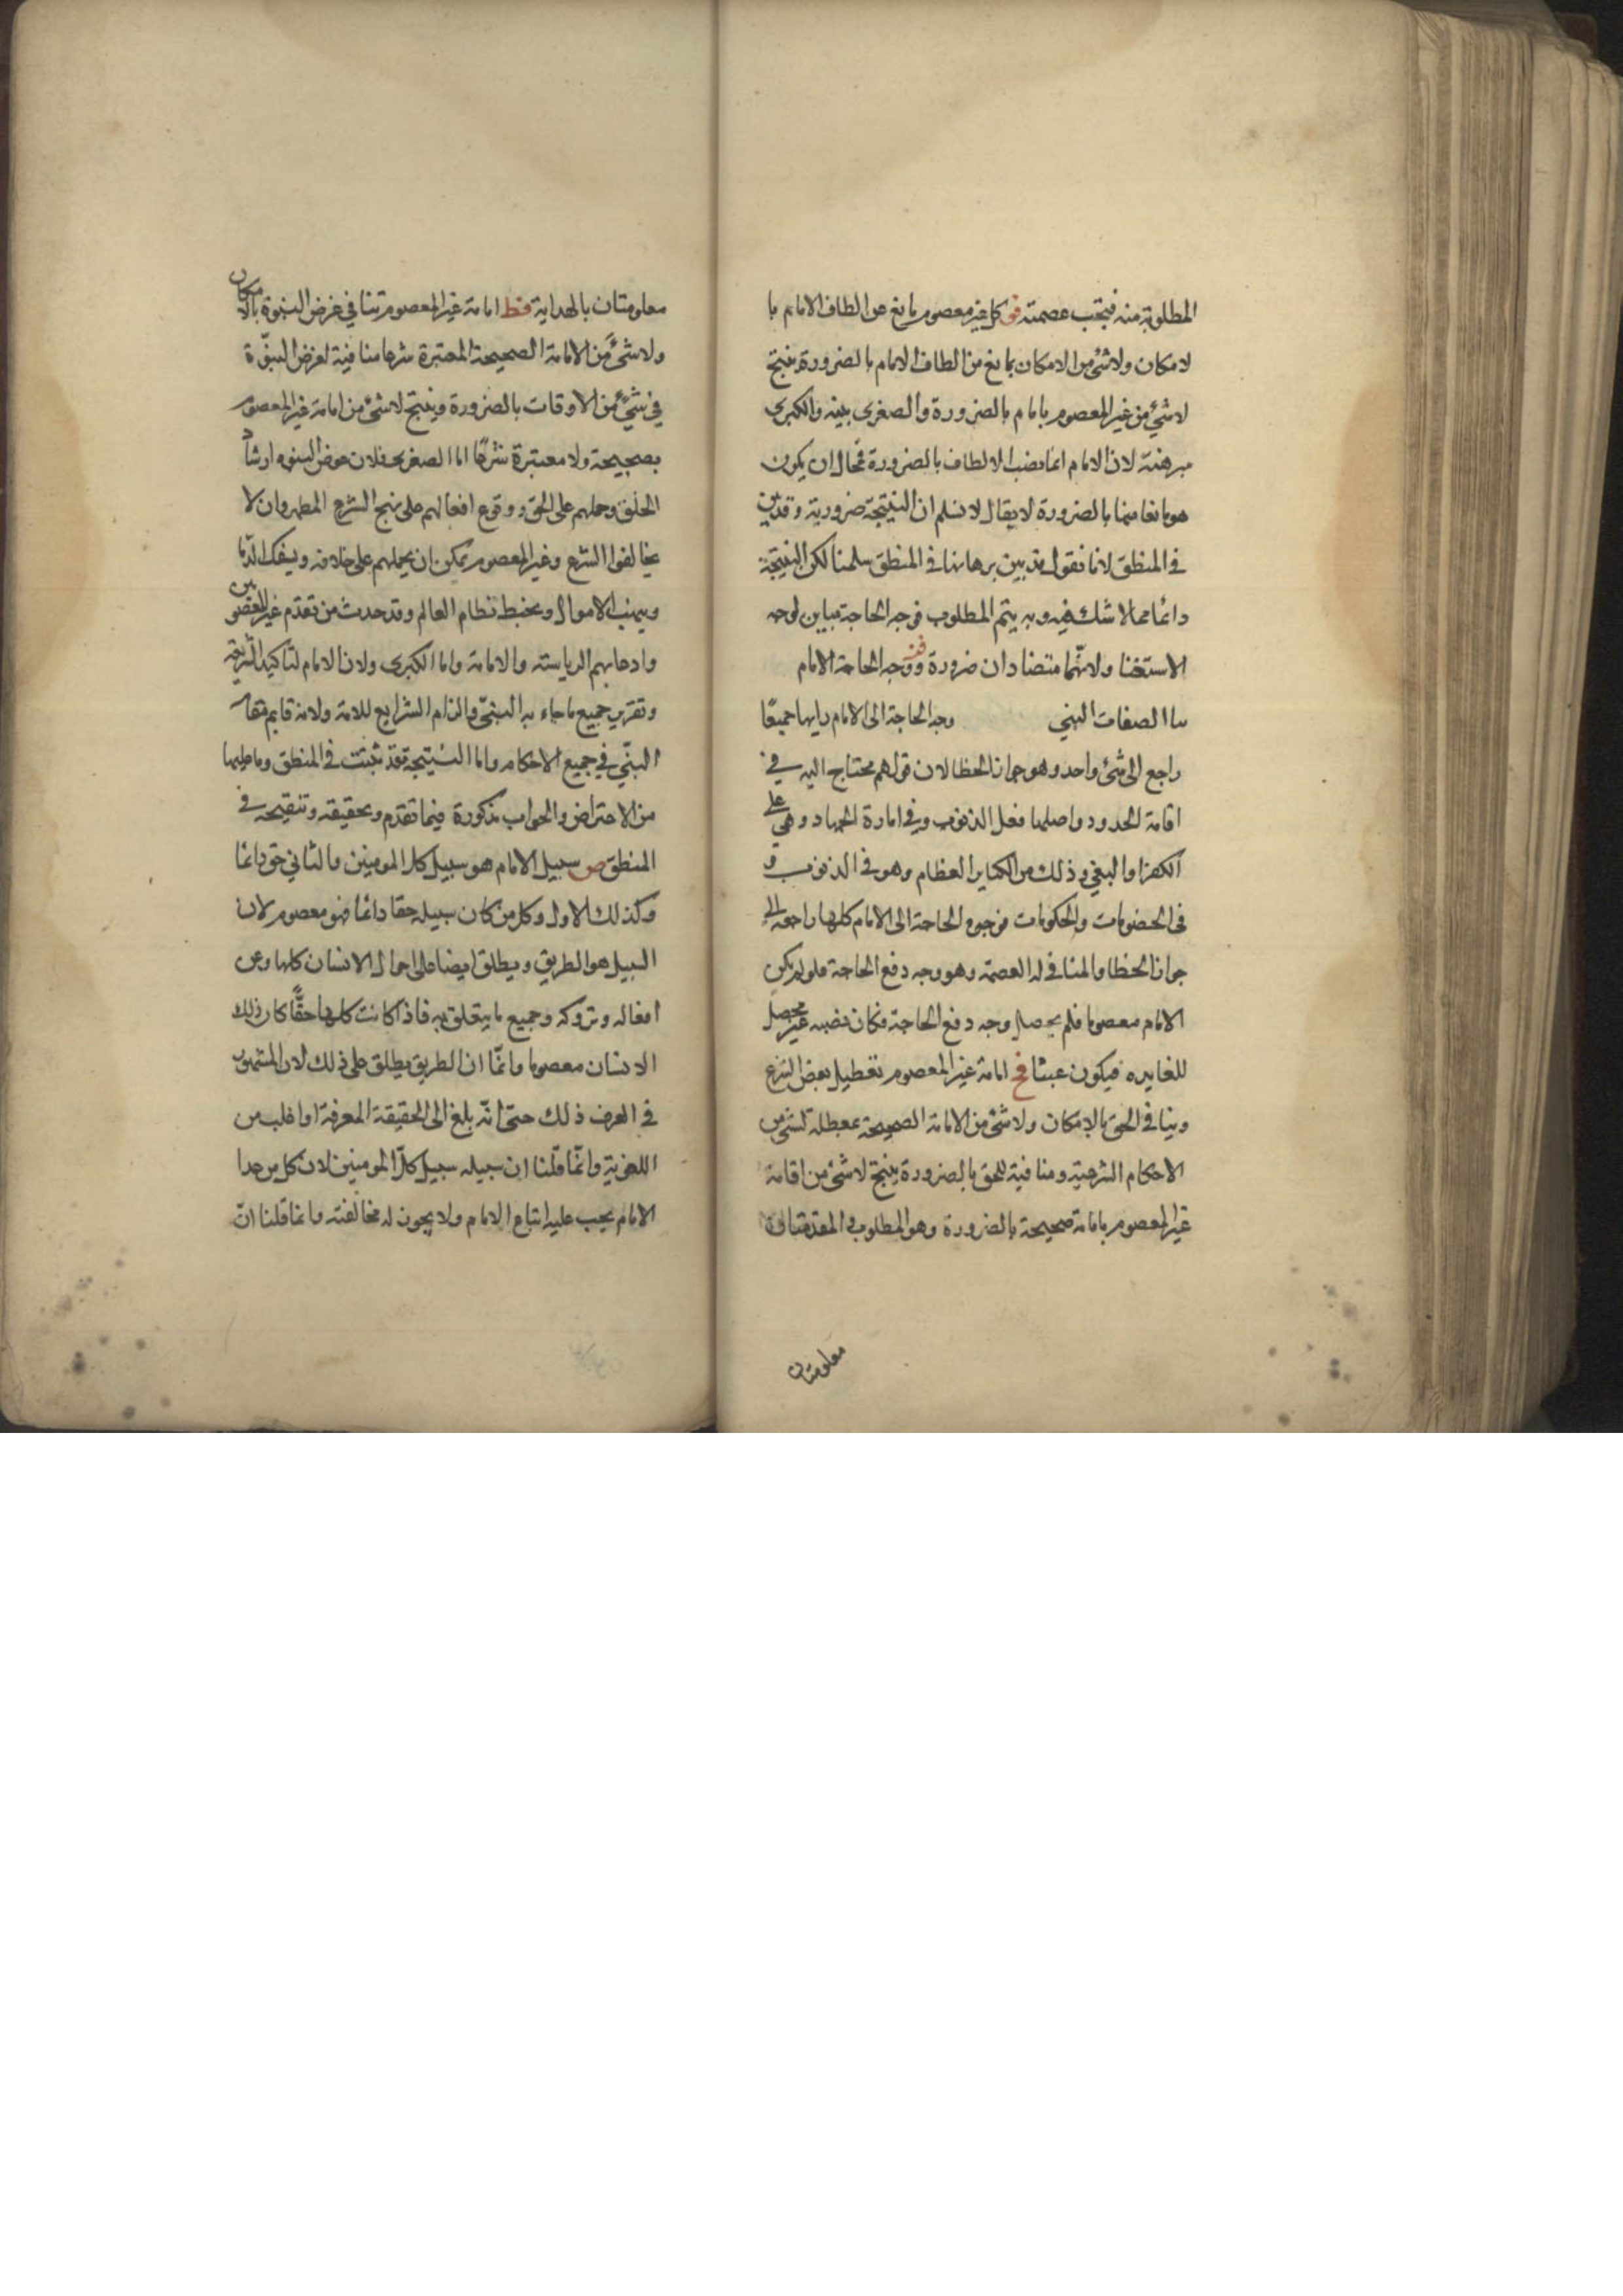 المطلوبة منه فيجب عصمته فو كل غير معصوم مانع عن الطاف الامام با
لامكان ولاشئ من الامكان بمانع من الطاف الامام بالضرورة ينتج
لاشئ من غير المعصوم بامام بالضرورة والصغرى بينه والكبرى
مبرهنة لان الامام انما نصب الالطاف بالضرورة فمحال ان يكون
هو مانعا منها بالضرورة لا يقال لا نسلم ان النتيجة ضرورية وقد بين
في المنطق لانا نقول قد بين برهانها في المنطق سلمنا لكن النتيجة
دائما مما لا شك فيه وبه يتم المطلوب فوجه الحاجة مباين لوجه
الاستغنا ولانهما متضادان ضرورة ووجه الحاجة الامام
الصفات البني وجه الحاجة الى الامام رايها جميعا
راجع الى شئ واحد وهو جواز الخطا لان قولهم محتاج اليه في
اقامة الحدود واصلها فعل الذنوب وفي امارة الجهاد وهي على
الكفر او البغي وذلك من الكباير العظام وهو في الذنوب و
في الخصومات والحكومات فوجوه الحاجة الى الامام كلها راجعة الى
جواز الخطا والمنافي له العصمة وهو وجه دفع الحاجة فلو لم يكن
الامام معصوما فلم يحصل وجه دفع الحاجة فكان نصبه غير محصل
للفايده فيكون عبثا فح امامة غير المعصوم تعطيل بعض الشرع
وينافي الحق بالامكان ولاشئ من الامامة الصحيحة بمعطلة لشئ من
الاحكام الشرعية ومنافية للحق بالضرورة ينتج لاشئ من اقامة
غير المعصوم بامامة صحيحة بالضرورة وهو المطلوب والمقدمتان
معلومتان
معلومتان بالهداية فط امامة غير المعصوم تنافي غرض النبوة بالامكان
ولاشئ من الامامة الصحيحة المعتبرة شرعا منافية لغرض النبوة
في شئ من الاوقات بالضرورة وينتج لاشئ من امامة غير المعصوم
بصحيحة ولا معتبرة شرعا اما الصغرى فلان عوض النبوه ارشاد
الخلق وحملهم على الحق ووقوع افعالهم على نهج الشرع المطهر وان لا
يخالفوا الشرع وغير المعصوم يمكن ان يحملهم على خلافه ويسفك الدما
وينهب الاموال ويخبط نظام العالم وقد حدث من تقدم غير المعصومين
وادعايهم الرياسته والامامة واما الكبرى ولان الامام لتاكيد الشريعة
وتقرير جميع ما جاء به النبي والزام الشرايع للامة ولانه قايم مقام
النبي في جميع الاحكام واما النتيجة فقد ثبتت في المنطق وما عليها
من الاعتراض والجواب مذكورة فيما تقدم وتحقيقه وتنقيحه في
المنطق ص سبيل الامام هو سبيل كل المومنين والثاني حق دائما
وكذلك الاول وكل من كان سبيله حقا دائما فهو معصوم لان
السبيل هو الطريق ويطلق ايضا على احوال الانسان كلها وعن
افعاله وتروكه وجميع ما يتعلق به فاذا كانت كلها حقا كان ذلك
الانسان معصوما وانما ان الطريق يطلق على ذلك لان المشهور
في العرف ذلك حتى انه بلغ الى الحقيقة المعرفة او اغلب من
اللغوية وانما قلنا ان سبيله سبيل كل المومنين لان كل من عدا
الامام يجب عليه اتباع الامام ولا يجوز له مخالفته وانما قلنا ان